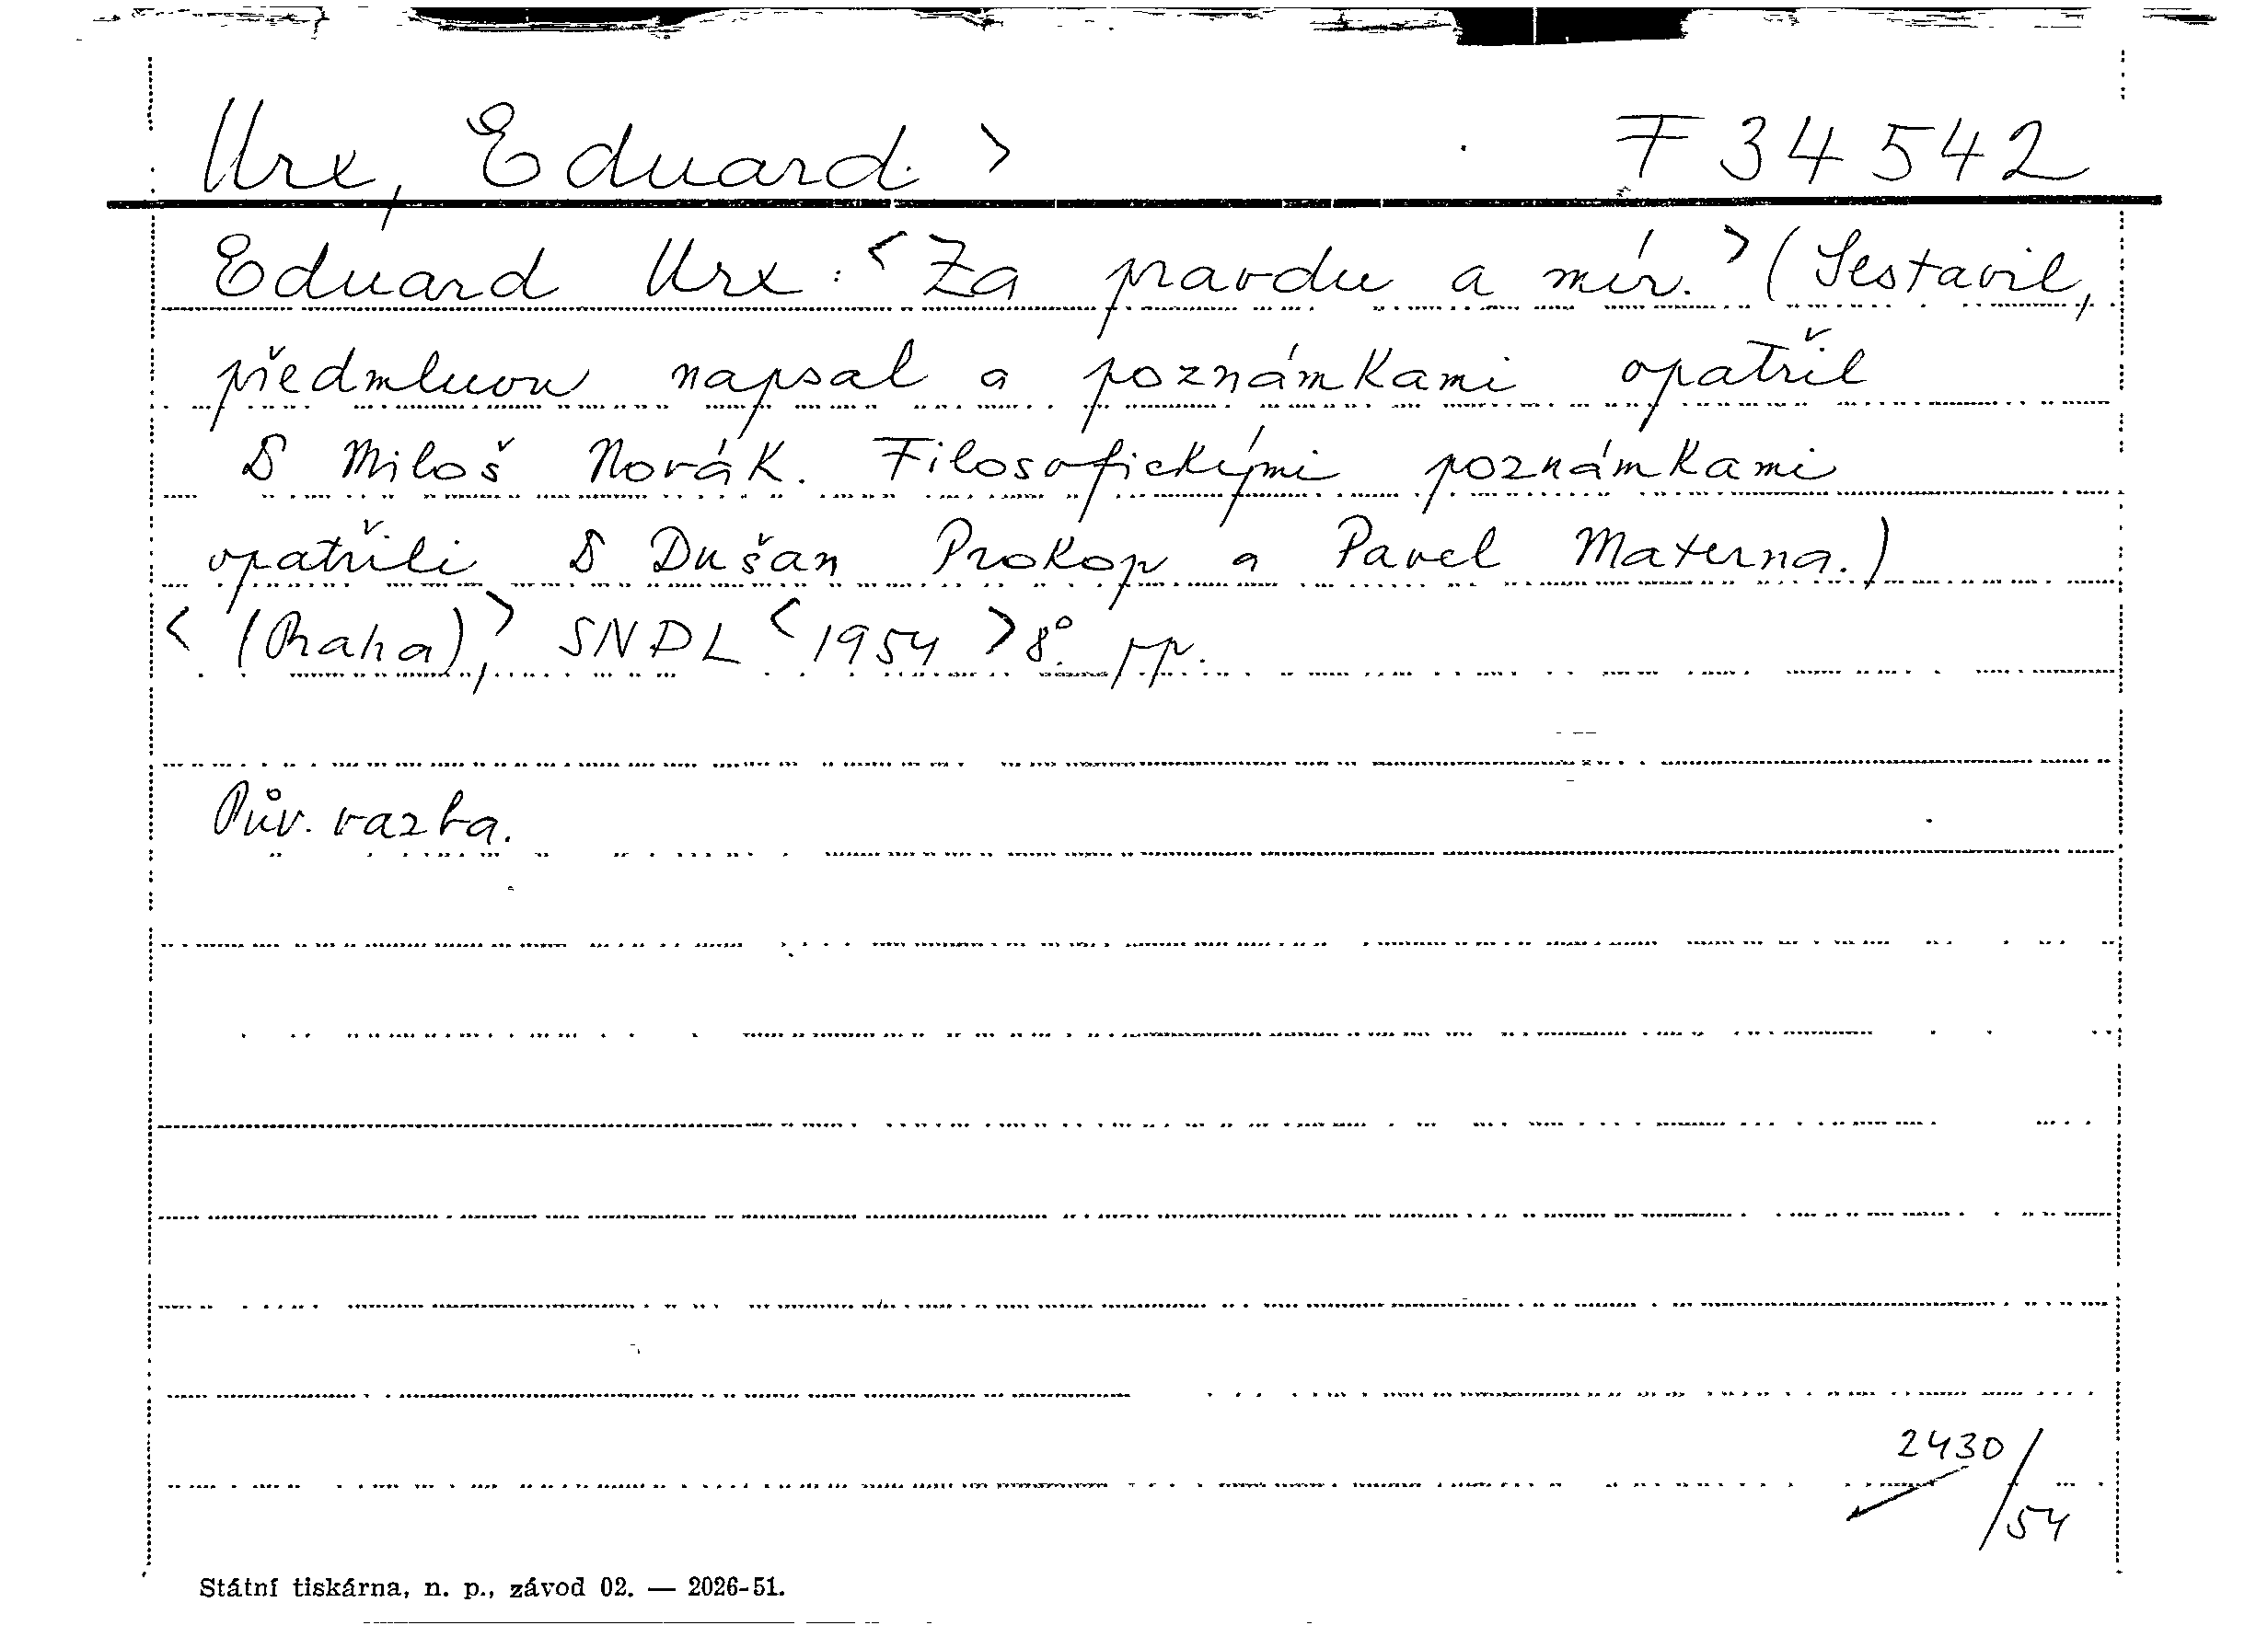 Urx, Eduard. > F 34542
Eduard Urx: <Za pravdu a mír.> (Sestavil,
předmluvu napsal a poznámkami opatřil
Miloš Novák. Filosofickými poznámkami
opatřili Dušan Prokop a Pavel Materna.)
<(Praha),> SNDL <1954> 8°. pp.
Pův. vazba.
2430/54
Státní tiskárna, n. p., závod 02. — 2026-51.